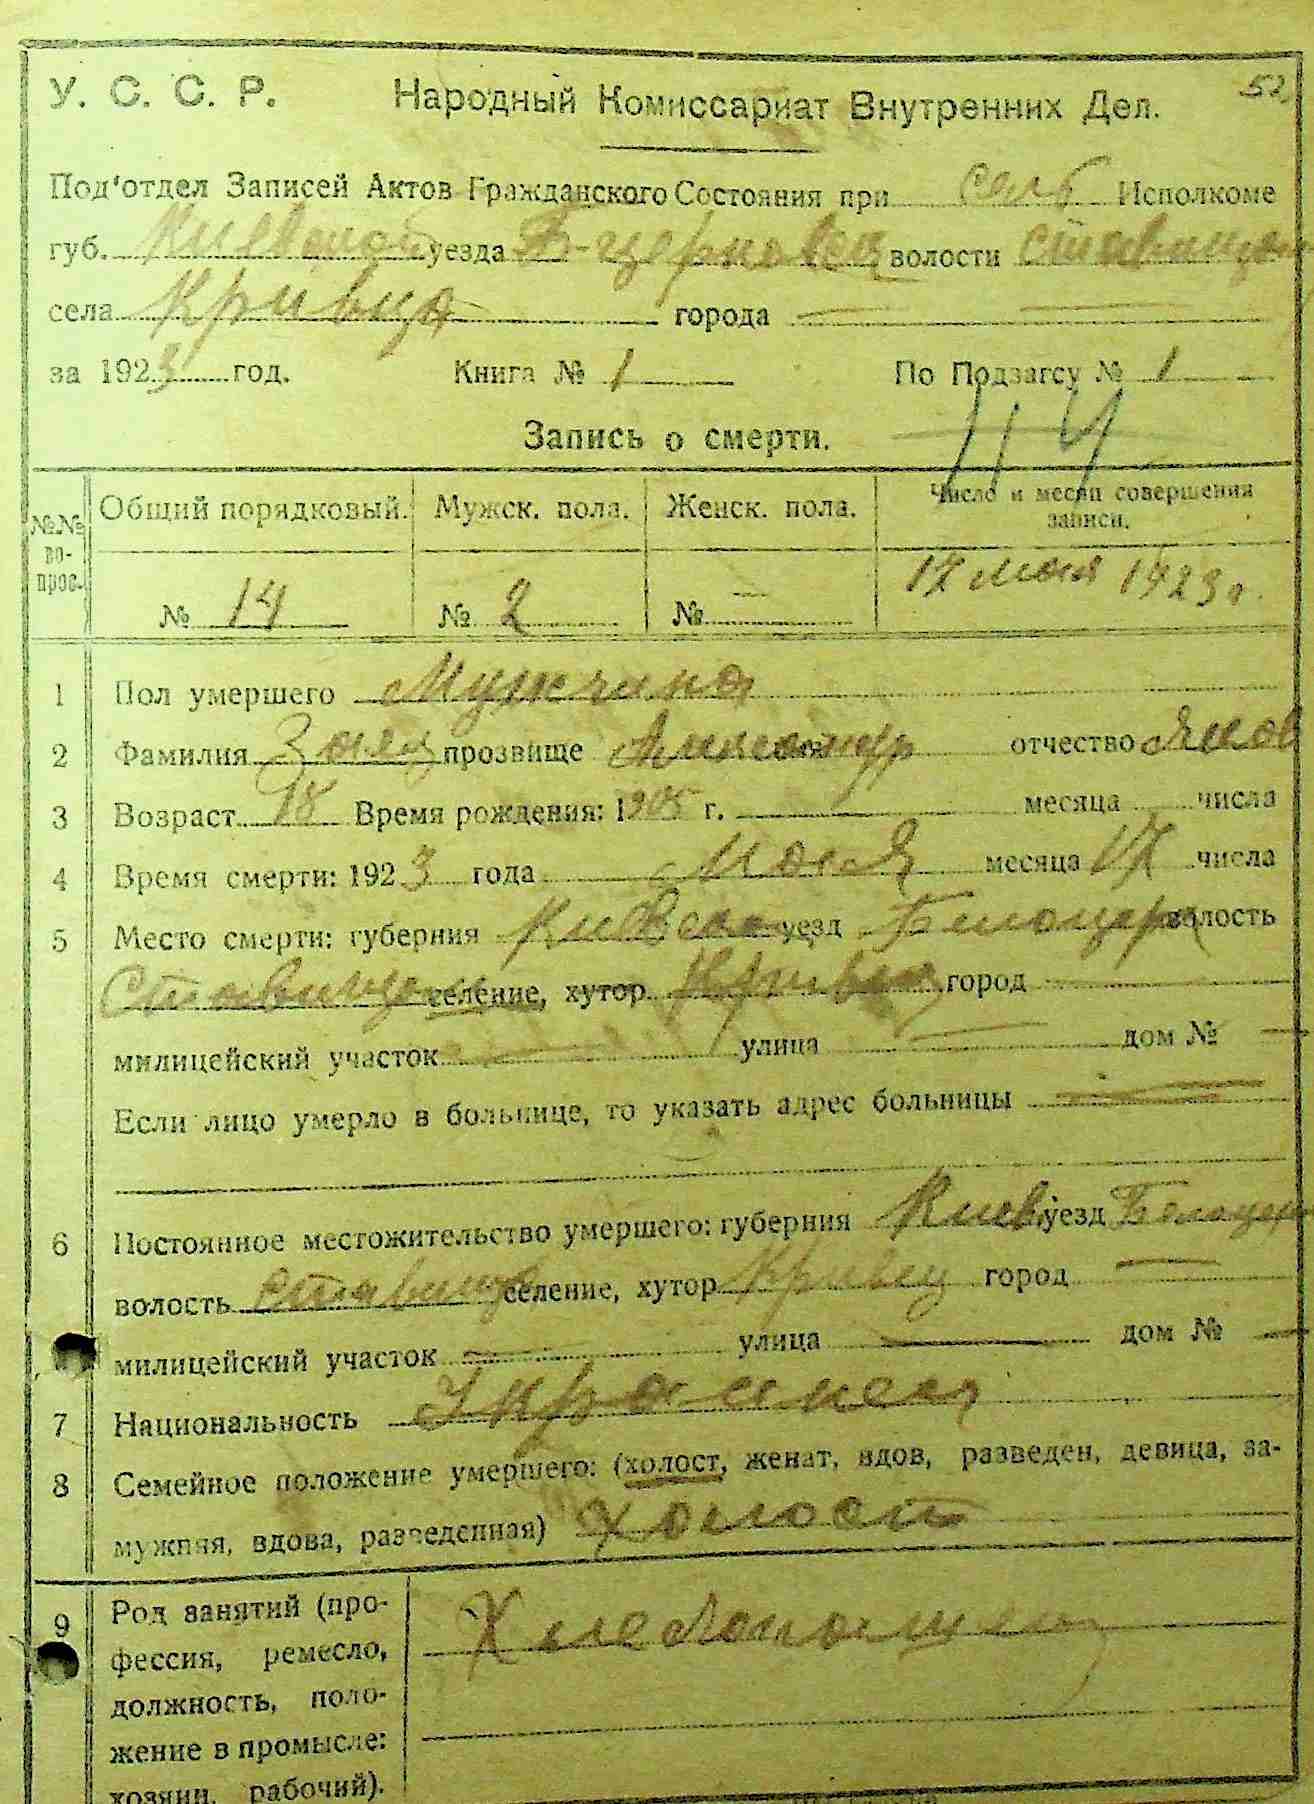 52
У. С. С. Р. Народный Комиссариат Внутренних Дел.
Под'отдел Записей Актов Гражданского Состояния при сель Исполкоме
губ. Киевской уезда Б-церковск волости Ставищан
села Кривца города —
за 1923 год. Книга № 1 По Подзагсу № 1
Запись о смерти.
№№ вопрос. Общий порядковый. Мужск. пола. Женск. пола. Число и месяц совершения
записи.
№ 14 № 2 № — 17 мая 1923 г.
1 Пол умершего Мужчина
2 Фамилия Заец прозвище Александр отчество Яков
3 Возраст 18 Время рождения: 1905 г. месяца числа
4 Время смерти: 1923 года Мая месяца 17 числа
5 Место смерти: губерния Киевская уезд Белоцерк волость
Ставищан селение, хутор Кривец город
милицейский участок — улица — дом № —
Если лицо умерло в больнице, то указать адрес больницы —
6 Постоянное местожительство умершего: губерния Киев уезд Белоцерк
волость Ставищ селение, хутор Кривец город —
милицейский участок — улица — дом № —
7 Национальность
8 Семейное положение умершего: (холост, женат, вдов, разведен, девица, за-
мужняя, вдова, разведенная) Холост
9 Род занятий (про-
фессия, ремесло,
должность, поло-
жение в промысле:
хозяин, рабочий).
Хлебопашец